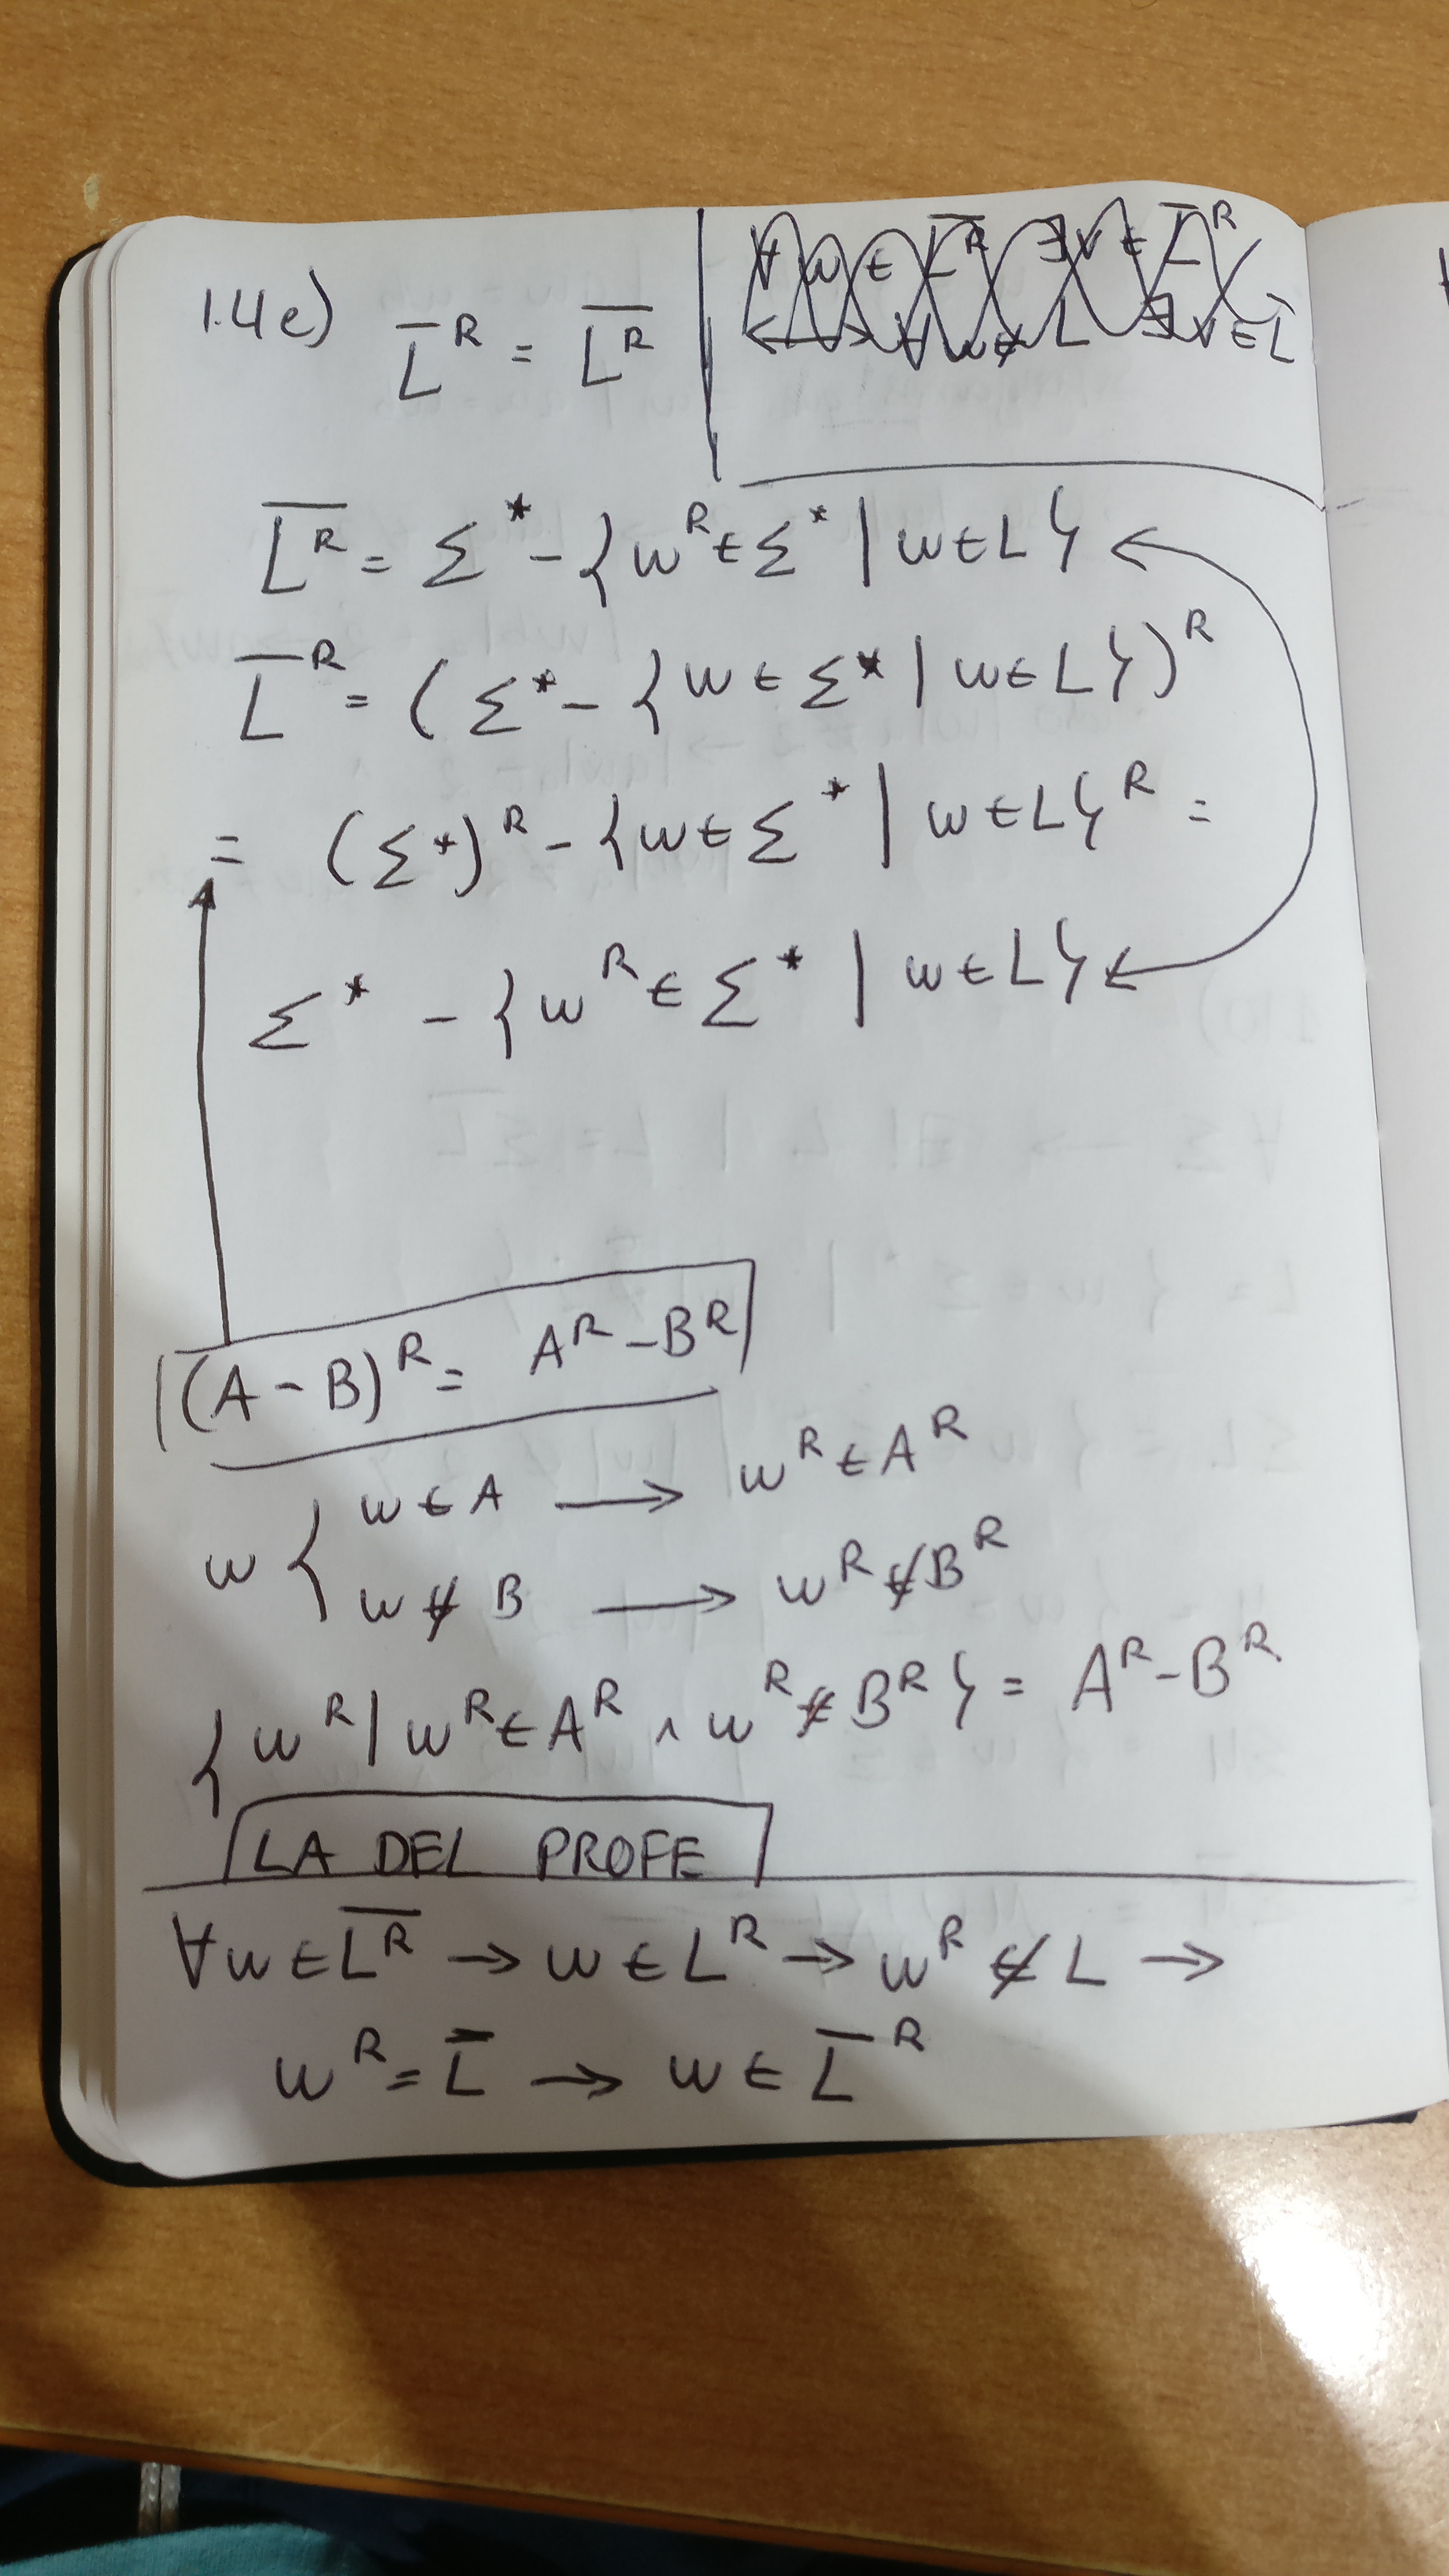 1.4e) L̅ᴿ = \overline{Lᴿ}
∀w ∈ \overline{Lᴿ} ∃v ∈ L̅ᴿ
∀w ∉ L ∃v ∈ L
\overline{Lᴿ} = Σ* - {wᴿ ∈ Σ* | w ∈ L}
L̅ᴿ = (Σ* - {w ∈ Σ* | w ∈ L})ᴿ
= (Σ*)ᴿ - {w ∈ Σ* | w ∈ L}ᴿ =
Σ* - {wᴿ ∈ Σ* | w ∈ L}
(A - B)ᴿ = Aᴿ - Bᴿ
w { w ∈ A → wᴿ ∈ Aᴿ
w ∉ B → wᴿ ∉ Bᴿ
{wᴿ | wᴿ ∈ Aᴿ ∧ wᴿ ∉ Bᴿ} = Aᴿ - Bᴿ
LA DEL PROFE
∀w ∈ \overline{Lᴿ} → w ∈ Lᴿ → wᴿ ∉ L →
wᴿ = L̅ → w ∈ L̅ᴿ